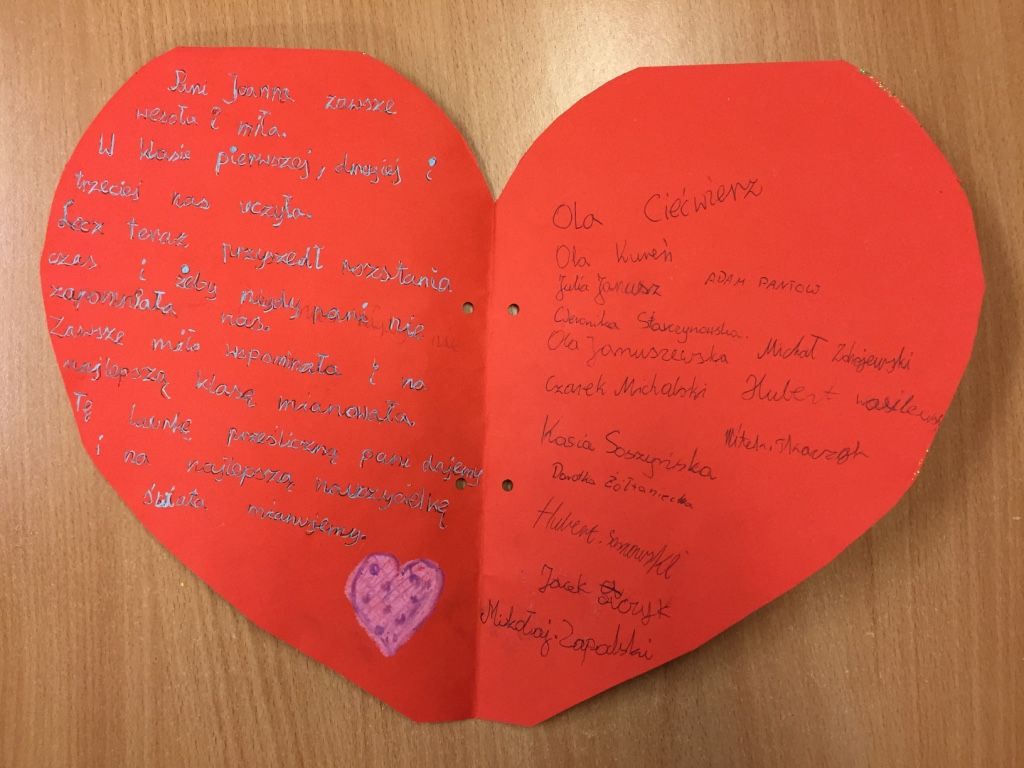 Pani Joanna zawsze
wesoła i miła.
W klasie pierwszej, drugiej i
trzeciej nas uczyła.
Lecz teraz przyszedł rozstania
czas i żeby nigdy pani nie
zapomniała nas.
Zawsze miło wspominała i na
najlepszą klasę mianowała.
Tę laurkę prześliczną pani dajemy
i na najlepszą nauczycielkę
świata mianujemy.
Ola Ciećwierz
Ola Kureń
Julia Janusz ADAM PANTOW
Weronika Starczynowska.
Ola Januszewska Michał Zdrojewski
Czarek Michalski Hubert
Kasia Soszyńska
Dorotka
Hubert.
Jacek
Mikołaj. Zapolski